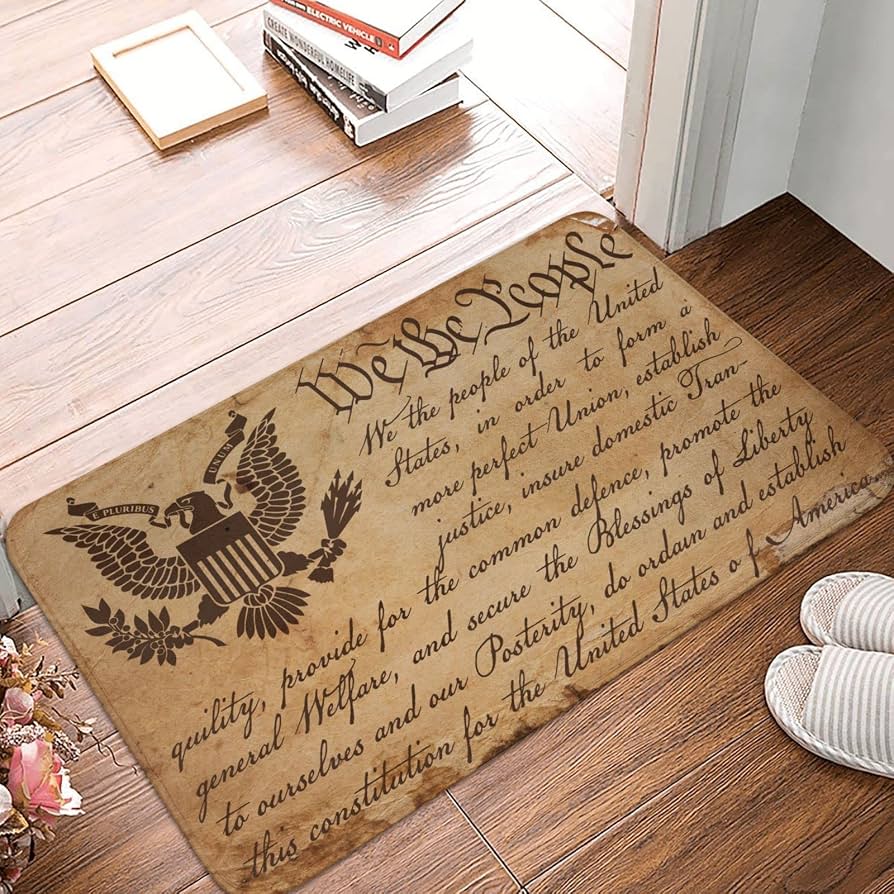 ELECTRIC VEHICLE
CREATE WONDERFUL HOMELIFE
We the People
We the people of the United
States, in order to form a
more perfect Union, establish
justice, insure domestic Tran-
quility, provide for the common defence, promote the
general Welfare, and secure the Blessings of Liberty
to ourselves and our Posterity, do ordain and establish
this constitution for the United States of America
E PLURIBUS
UNUM